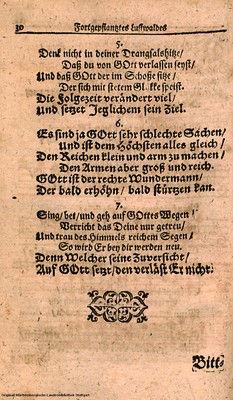 30 Fortgepflanztes Lustwaldes
5.
Denk nicht in deiner Drangsalshitze,
Daß du von GOtt verlassen seyst,
Und daß GOtt der im Schoße sitze,
Der sich mit stetem Glükke speist.
Die Folgezeit verändert viel,
Und setzet Jeglichem sein Ziel.
6.
Es sind ja GOtt sehr schlechte Sachen,
Und ist dem Höchsten alles gleich,
Den Reichen klein und arm zu machen,
Den Armen aber groß und reich.
GOtt ist der rechte Wundermann,
Der bald erhöhn, bald stürtzen kan.
7.
Sing, bet, und geh auf GOttes Wegen,
Verricht das Deine nur getreu,
Und trau des Himmels reichem Segen,
So wird Er bey dir werden neu.
Denn Welcher seine Zuversicht,
Auf GOtt setzt, den verläst Er nicht.
Bitt-